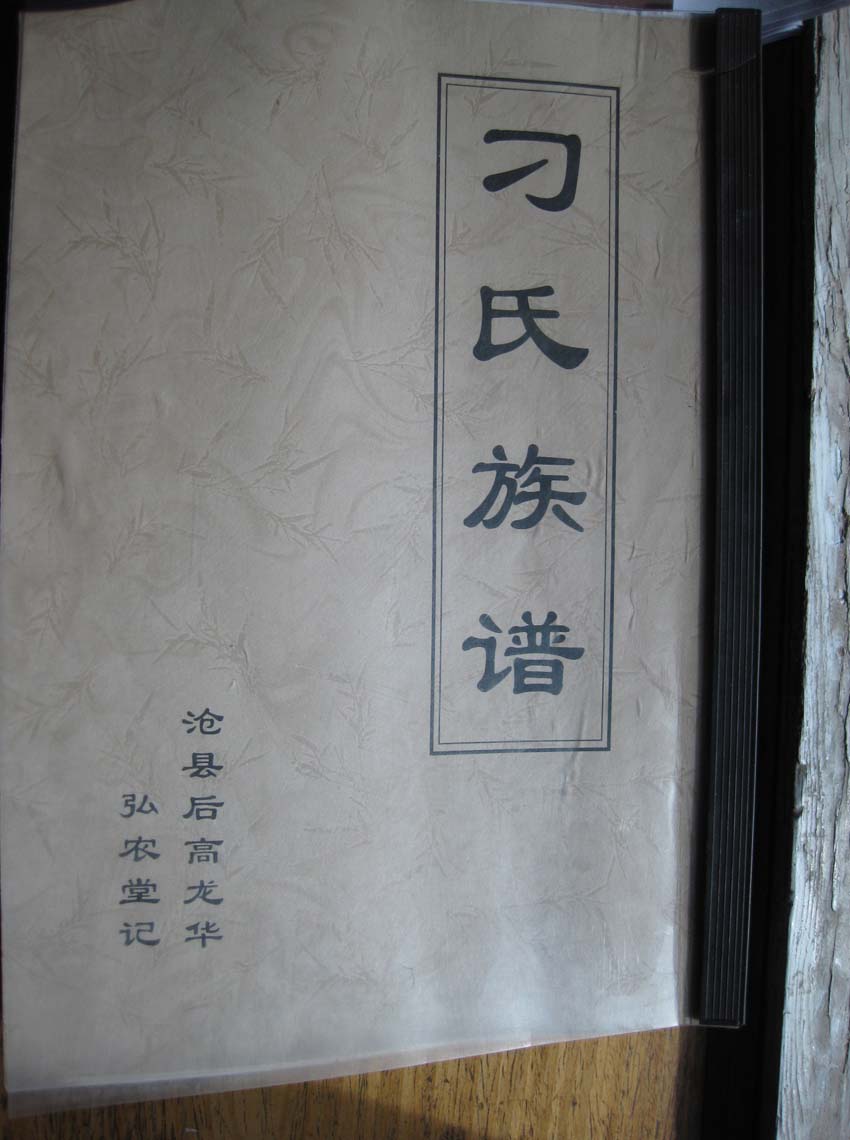 刁氏族谱
沧县后高龙华
弘农堂记